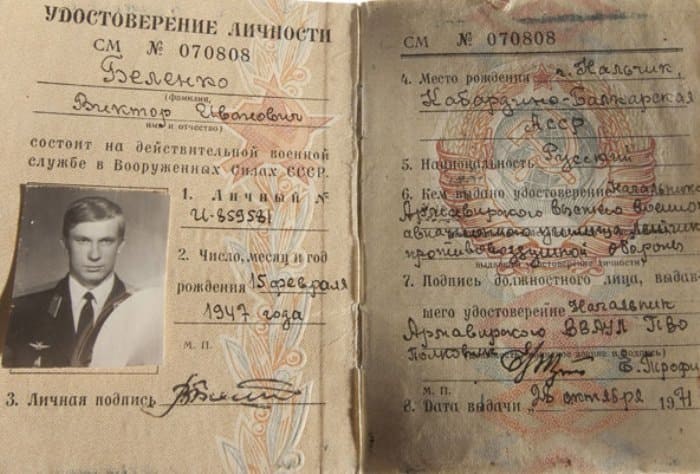 УДОСТОВЕРЕНИЕ ЛИЧНОСТИ
СМ № 070808
Беленко
(фамилия,
Виктор Иванович
имя и отчество)
состоит на действительной военной
службе в Вооруженных Силах СССР.
1. Личный №
И-859531
2. Число, месяц и год
рождения 15 февраля
1947 года
М. П.
3. Личная подпись
СМ № 070808
4. Место рождения г. Нальчик,
Кабардино-Балкарская
АССР
5. Национальность Русский
6. Кем выдано удостоверение Начальник
Армавирского высшего военного
авиационного училища летчиков
противовоздушной обороны
7. Подпись должностного лица, выдав
шего удостоверение Начальник
Армавирского ВВАУЛ ПВО
полковник
М. П.
8. Дата выдачи „ октября 1971